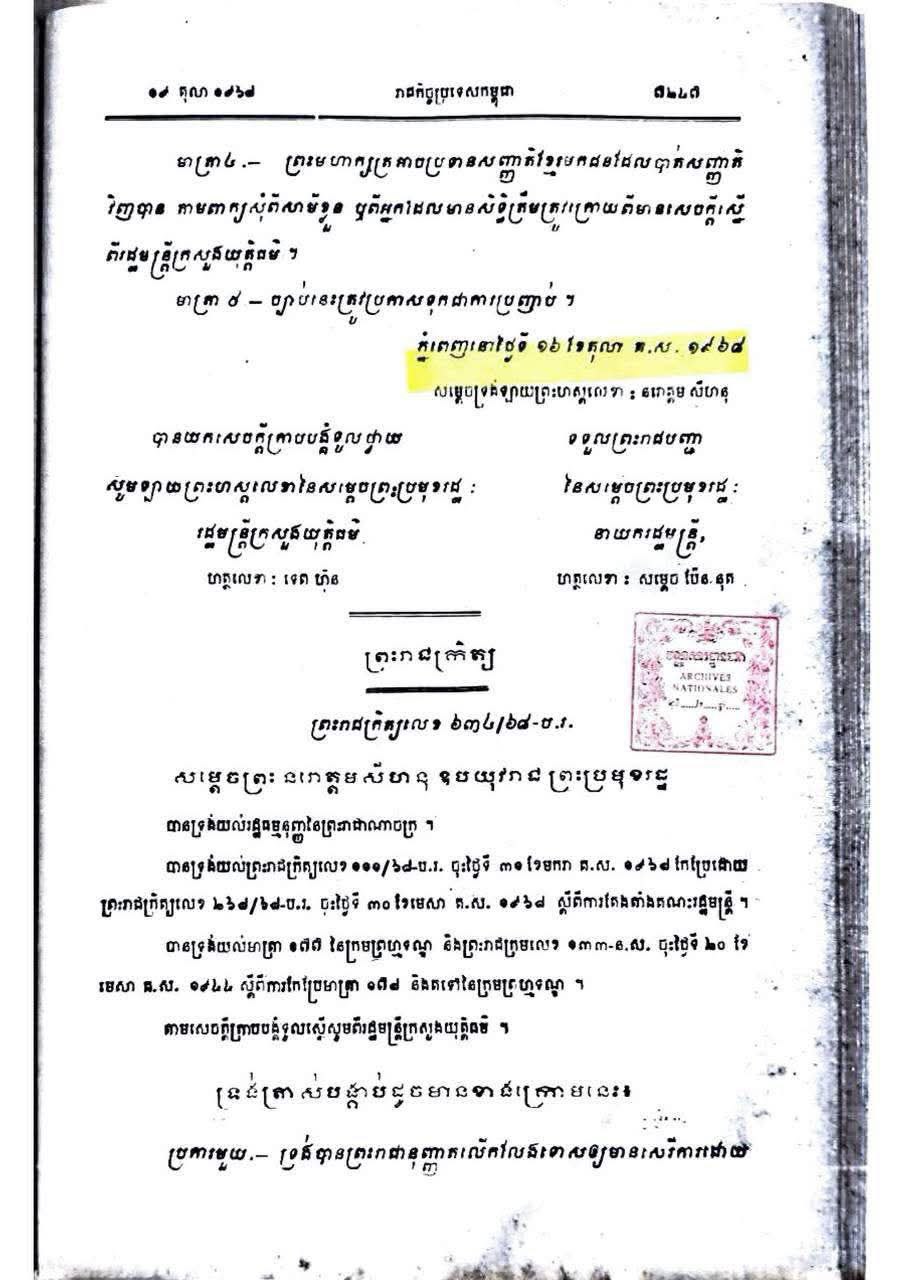 ១៩ តុលា ១៩៦៨ រាជកិច្ចប្រទេសកម្ពុជា ៧២៤៧
មាត្រា៤.— ព្រះមហាក្សត្រអាចប្រទានសញ្ជាតិខ្មែរមកជនដែលបាត់សញ្ជាតិ
វិញបាន តាមពាក្យសុំពីសាមីខ្លួន ឬពីអ្នកដែលមានសិទ្ធិត្រឹមត្រូវក្រោយពីមានសេចក្ដីស្នើ
ពីរដ្ឋមន្ត្រីក្រសួងយុត្តិធម៌ ។
មាត្រា ៥ — ច្បាប់នេះត្រូវប្រកាសទុកជាការប្រញាប់ ។
ភ្នំពេញនៅថ្ងៃទី ១៦ ខែតុលា គ.ស. ១៩៦៨
សម្ដេចទ្រង់ឡាយព្រះហស្តលេខា : នរោត្តម សីហនុ
បានយកសេចក្ដីក្រាបបង្គំទូលថ្វាយ ទទួលព្រះរាជបញ្ជា
សូមឡាយព្រះហស្តលេខានៃសម្ដេចព្រះប្រមុខរដ្ឋ : នៃសម្ដេចព្រះប្រមុខរដ្ឋ :
រដ្ឋមន្ត្រីក្រសួងយុត្តិធម៌ នាយករដ្ឋមន្ត្រី,
ហត្ថលេខា : ទេព ហ៊ុន ហត្ថលេខា : សម្ដេច ប៉ែន.នុត
ព្រះរាជក្រឹត្យ
ARCHIVES
NATIONALES
ព្រះរាជក្រឹត្យលេខ ៦៣៤/៦៨-ប.រ.
សម្ដេចព្រះ នរោត្តមសីហនុ ឧបយុវរាជ ព្រះប្រមុខរដ្ឋ
បានទ្រង់យល់រដ្ឋធម្មនុញ្ញនៃព្រះរាជាណាចក្រ ។
បានទ្រង់យល់ព្រះរាជក្រឹត្យលេខ ១១១/៦៨-ប.រ. ចុះថ្ងៃទី ៣១ ខែមករា គ.ស. ១៩៦៨ កែប្រែដោយ
ព្រះរាជក្រឹត្យលេខ ២៦៨/៦៨-ប.រ. ចុះថ្ងៃទី ៣០ ខែមេសា គ.ស. ១៩៦៨ ស្ដីពីការតែងតាំងគណះរដ្ឋមន្ត្រី ។
បានទ្រង់យល់មាត្រា ១៧៧ នៃក្រមព្រហ្មទណ្ឌ និងព្រះរាជក្រមលេខ ១៣៣-ន.ស. ចុះថ្ងៃទី ២០ ខែ
មេសា គ.ស. ១៩៤៤ ស្ដីពីការកែប្រែមាត្រា ១៧៨ និងតទៅនៃក្រមព្រហ្មទណ្ឌ ។
តាមសេចក្ដីក្រាបបង្គំទូលស្នើសូមពីរដ្ឋមន្ត្រីក្រសួងយុត្តិធម៌ ។
ទ្រង់ត្រាស់បង្គាប់ដូចមានខាងក្រោមនេះ៖
ប្រការមួយ.— ទ្រង់បានព្រះរាជានុញ្ញាតលើកលែងទោសឲ្យមានសេរីការដោយ